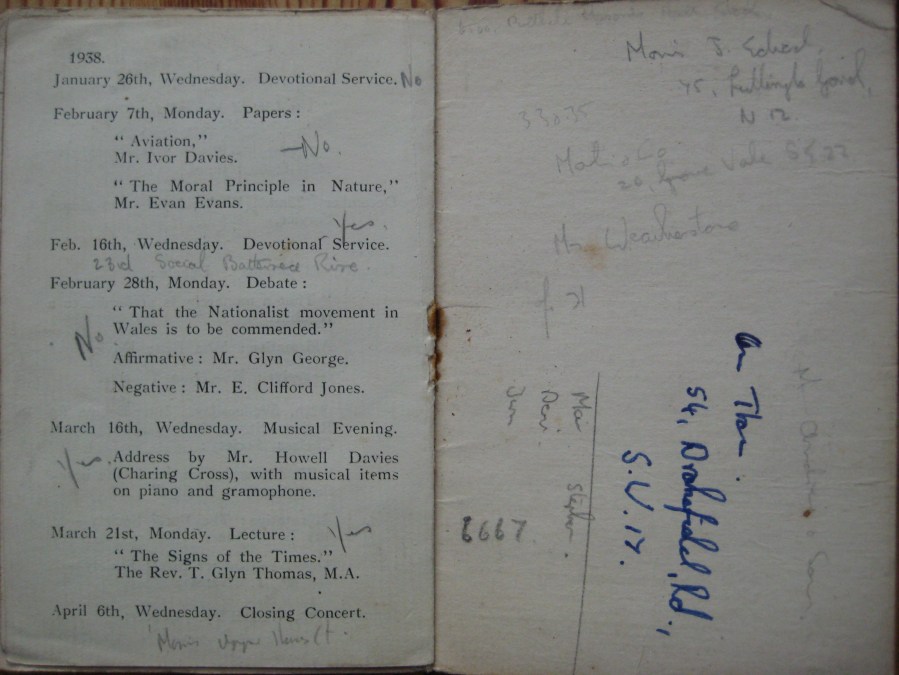 1938.
January 26th, Wednesday. Devotional Service. No
February 7th, Monday. Papers :
" Aviation,"
Mr. Ivor Davies.
No.
" The Moral Principle in Nature,"
Mr. Evan Evans.
Yes.
Feb. 16th, Wednesday. Devotional Service.
23rd Social Battersea Rise.
February 28th, Monday. Debate :
" That the Nationalist movement in
No
Wales is to be commended."
Affirmative : Mr. Glyn George.
Negative : Mr. E. Clifford Jones.
March 16th, Wednesday. Musical Evening.
Yes
Address by Mr. Howell Davies
(Charing Cross), with musical items
on piano and gramophone.
March 21st, Monday. Lecture : Yes
" The Signs of the Times."
The Rev. T. Glyn Thomas, M.A.
April 6th, Wednesday. Closing Concert.
Morris
Morris J.
45,
N 12.
33035
20, Grove Vale
Mr Weatherstone
54, Drakefield Rd.,
S.W. 17.
Mai Stephen.
6667